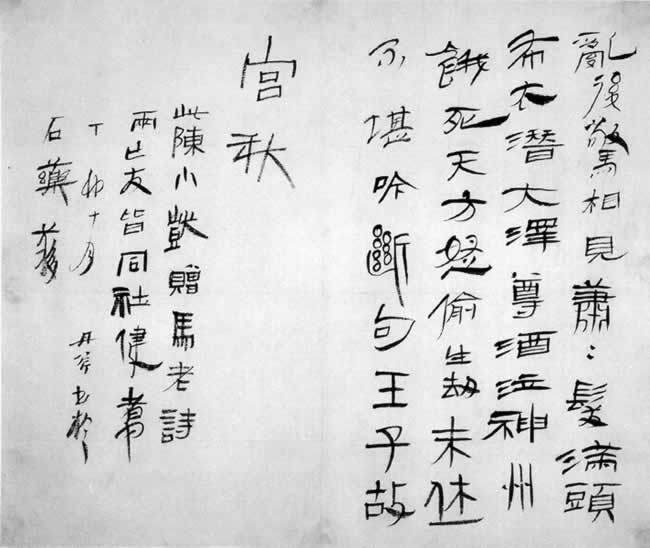 亂後驚相見蕭〻髮滿頭
布衣潛大澤尊酒泣神州
餓死天方怒偷生劫未休
不堪吟斷句王子故
宮秋
此陳小贈馬老詩
兩亡友皆同社健者
丁卯十月丹斧書於
石藥簃